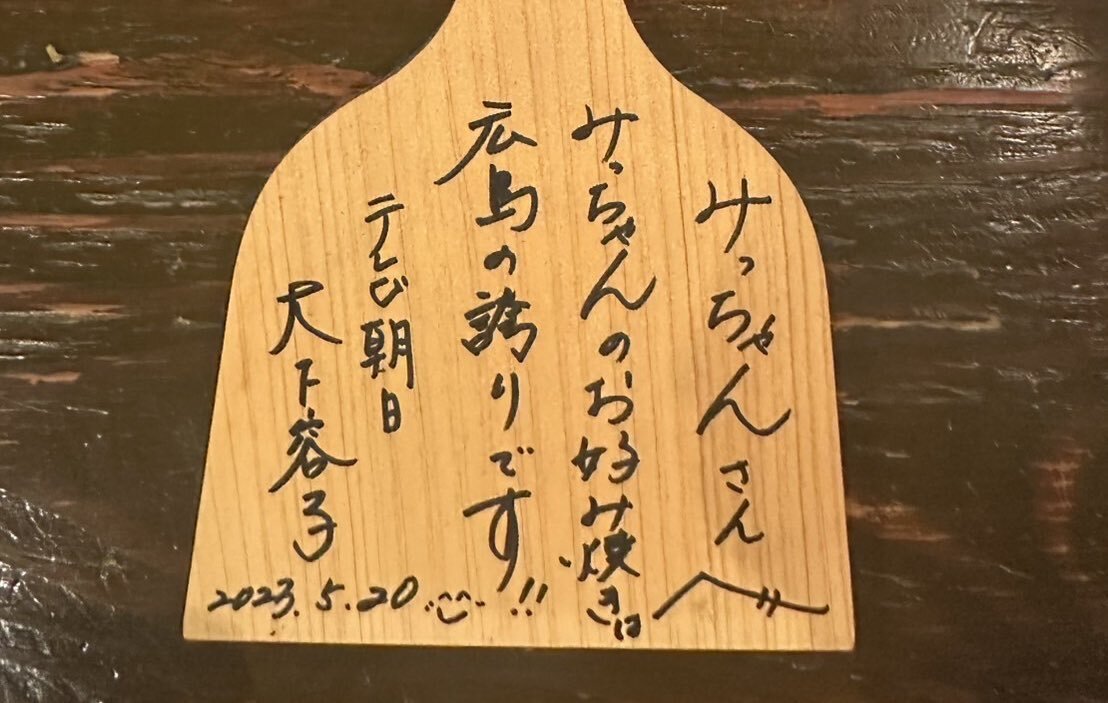 みっちゃんさんへ
みっちゃんのお好み焼きは
広島の誇りです!!
テレビ朝日
大下容子
2023.5.20